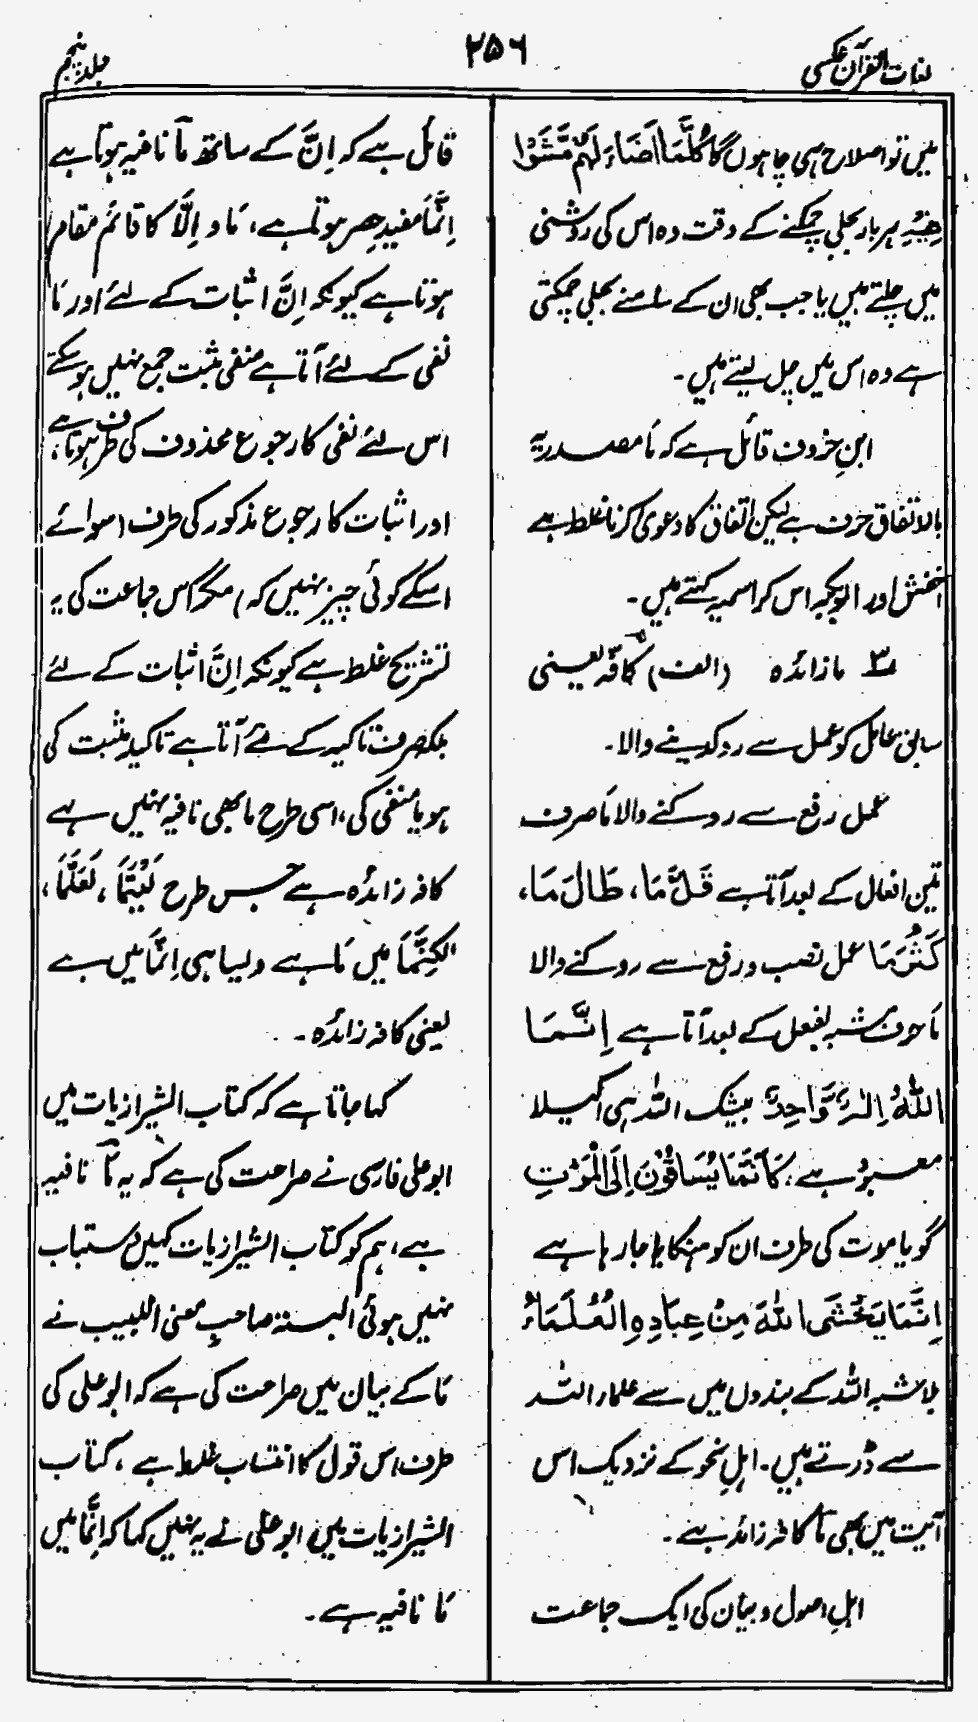 لغات القرآن عکسی
۲۵۶
جلد پنجم
میں تو اصلاح ہی چاہوں گا کُلَّمَا اَضَاءَ لَهُمْ مَّشَوْا
فِیْهِ ہر بار بجلی چمکنے کے وقت وہ اس کی روشنی
میں چلتے ہیں یا جب بھی ان کے سامنے بجلی چمکتی
ہے وہ اس میں چل لیتے ہیں۔
ابنِ خروف قائل ہے کہ مَا مصدریہ
بالاتفاق حرف ہے لیکن اتفاق کا دعویٰ کرنا غلط ہے
اخفش اور ابوبکر اس کو اسمیہ کہتے ہیں۔
۳ ما زائدہ (الف) کافہ یعنی
سابق عامل کو عمل سے روک دینے والا۔
عمل رفع سے روکنے والا مَا صرف
تین افعال کے بعد آتا ہے قَلَّ مَا، طَالَ مَا،
کَثُرَ مَا عمل نصب و رفع سے روکنے والا
مَا حروف مشبہ بفعل کے بعد آتا ہے اِنَّمَا
اللّٰهُ اِلٰهٌ وَّاحِدٌ بیشک اللہ ہی اکیلا
معبود ہے، کَاَنَّمَا یُسَاقُوْنَ اِلَی الْمَوْتِ
گویا موت کی طرف ان کو ہنکایا جا رہا ہے
اِنَّمَا یَخْشَی اللّٰهَ مِنْ عِبَادِهِ الْعُلَمَاءُ
بلا شبہ اللہ کے بندوں میں سے علماء اللہ
سے ڈرتے ہیں۔ اہلِ نحو کے نزدیک اس
آیت میں بھی مَا کافہ زائد ہے۔
اہلِ اصول و بیان کی ایک جماعت
قائل ہے کہ اِنَّ کے ساتھ مَا نافیہ ہوتا ہے
اِنَّمَا مفیدِ حصر ہوتا ہے، مَا و اِلَّا کا قائم مقام
ہوتا ہے کیونکہ اِنَّ اثبات کے لئے اور مَا
نفی کے لئے آتا ہے منفی مثبت جمع نہیں ہو سکتے
اس لئے نفی کا رجوع محذوف کی طرف ہوتا ہے،
اور اثبات کا رجوع مذکور کی طرف (سوائے
اسکے کوئی چیز نہیں کہ) مگر اس جماعت کی یہ
تشریح غلط ہے کیونکہ اِنَّ اثبات کے لئے
بلکہ صرف تاکید کے لئے آتا ہے تاکید مثبت کی
ہو یا منفی کی، اسی طرح ما بھی نافیہ نہیں ہے
کافہ زائدہ ہے جس طرح لَیْتَمَا، لَعَلَّمَا،
لٰکِنَّمَا میں مَا ہے ویسا ہی اِنَّمَا میں ہے
یعنی کافہ زائدہ۔
کہا جاتا ہے کہ کتاب الشیرازیات میں
ابو علی فارسی نے صراحت کی ہے کہ یہ مَا نافیہ
ہے، ہم کو کتاب الشیرازیات کہیں دستیاب
نہیں ہوئی البتہ صاحبِ مغنی اللبیب نے
مَا کے بیان میں صراحت کی ہے کہ ابو علی کی
طرف اس قول کا انتساب غلط ہے، کتاب
الشیرازیات میں ابو علی نے یہ نہیں کہا کہ اِنَّمَا میں
مَا نافیہ ہے۔